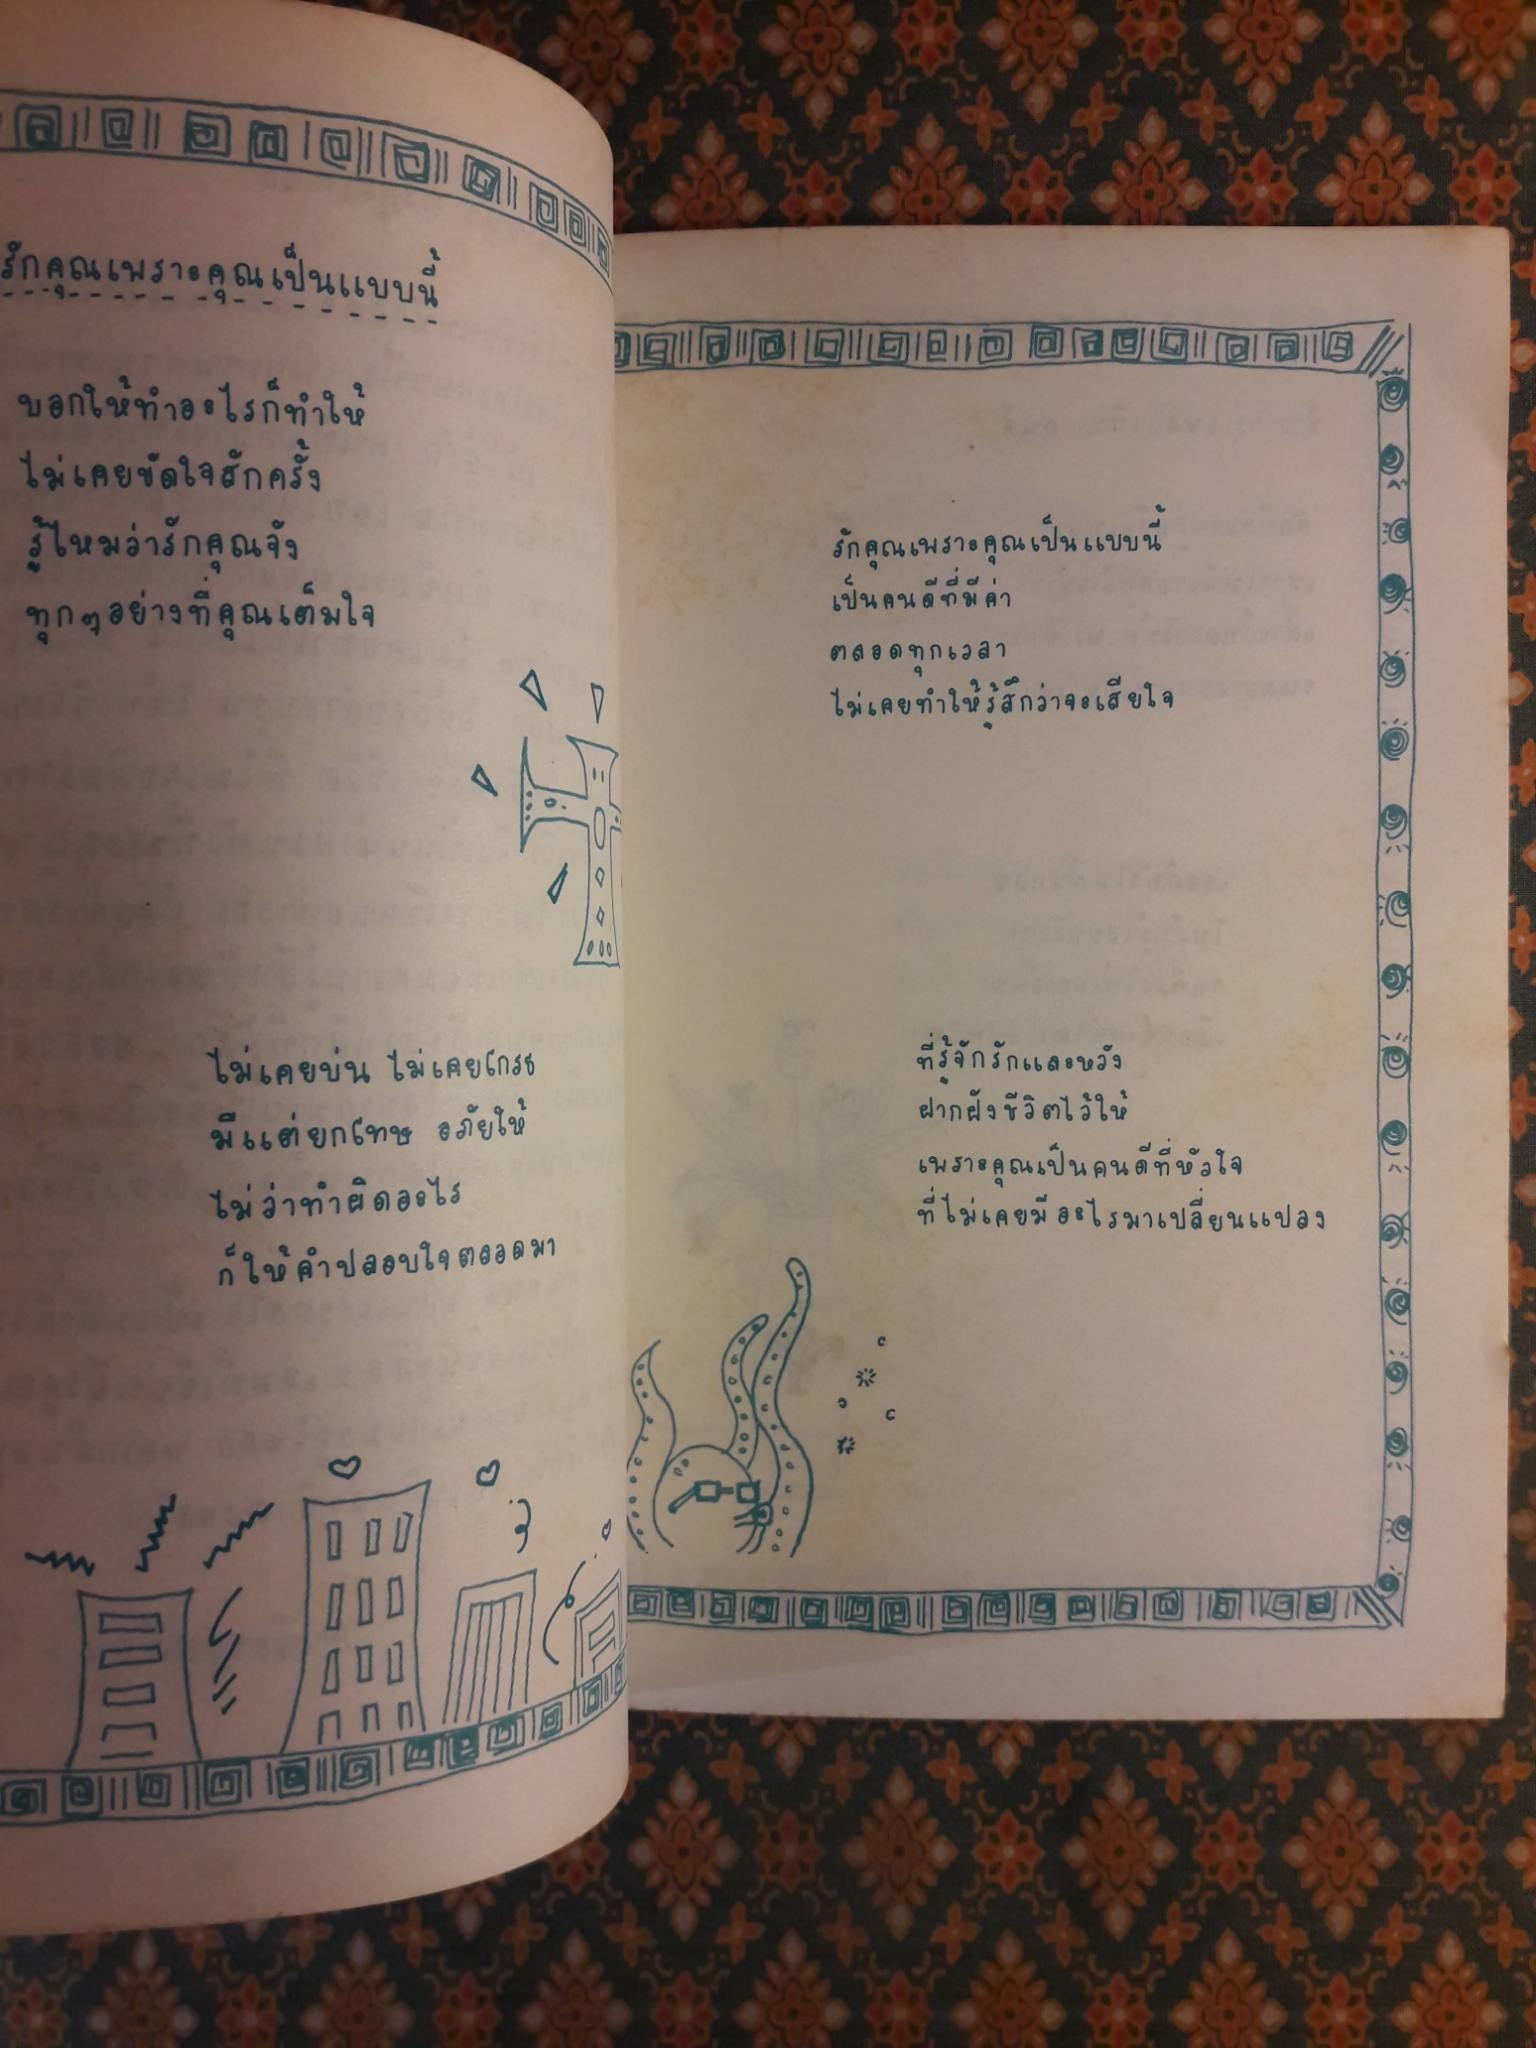 รักคุณเพราะคุณเป็นแบบนี้
บอกให้ทำอะไรก็ทำให้
ไม่เคยขัดใจสักครั้ง
รู้ไหมว่ารักคุณจัง
ทุกๆอย่างที่คุณเต็มใจ
ไม่เคยบ่น ไม่เคยโกรธ
มีแต่ยกโทษ อภัยให้
ไม่ว่าทำผิดอะไร
ก็ให้คำปลอบใจตลอดมา
รักคุณเพราะคุณเป็นแบบนี้
เป็นคนดีที่มีค่า
ตลอดทุกเวลา
ไม่เคยทำให้รู้สึกว่าจะเสียใจ
ที่รู้จักรักและหวัง
ฝากฝังชีวิตไว้ให้
เพราะคุณเป็นคนดีที่หัวใจ
ที่ไม่เคยมีอะไรมาเปลี่ยนแปลง